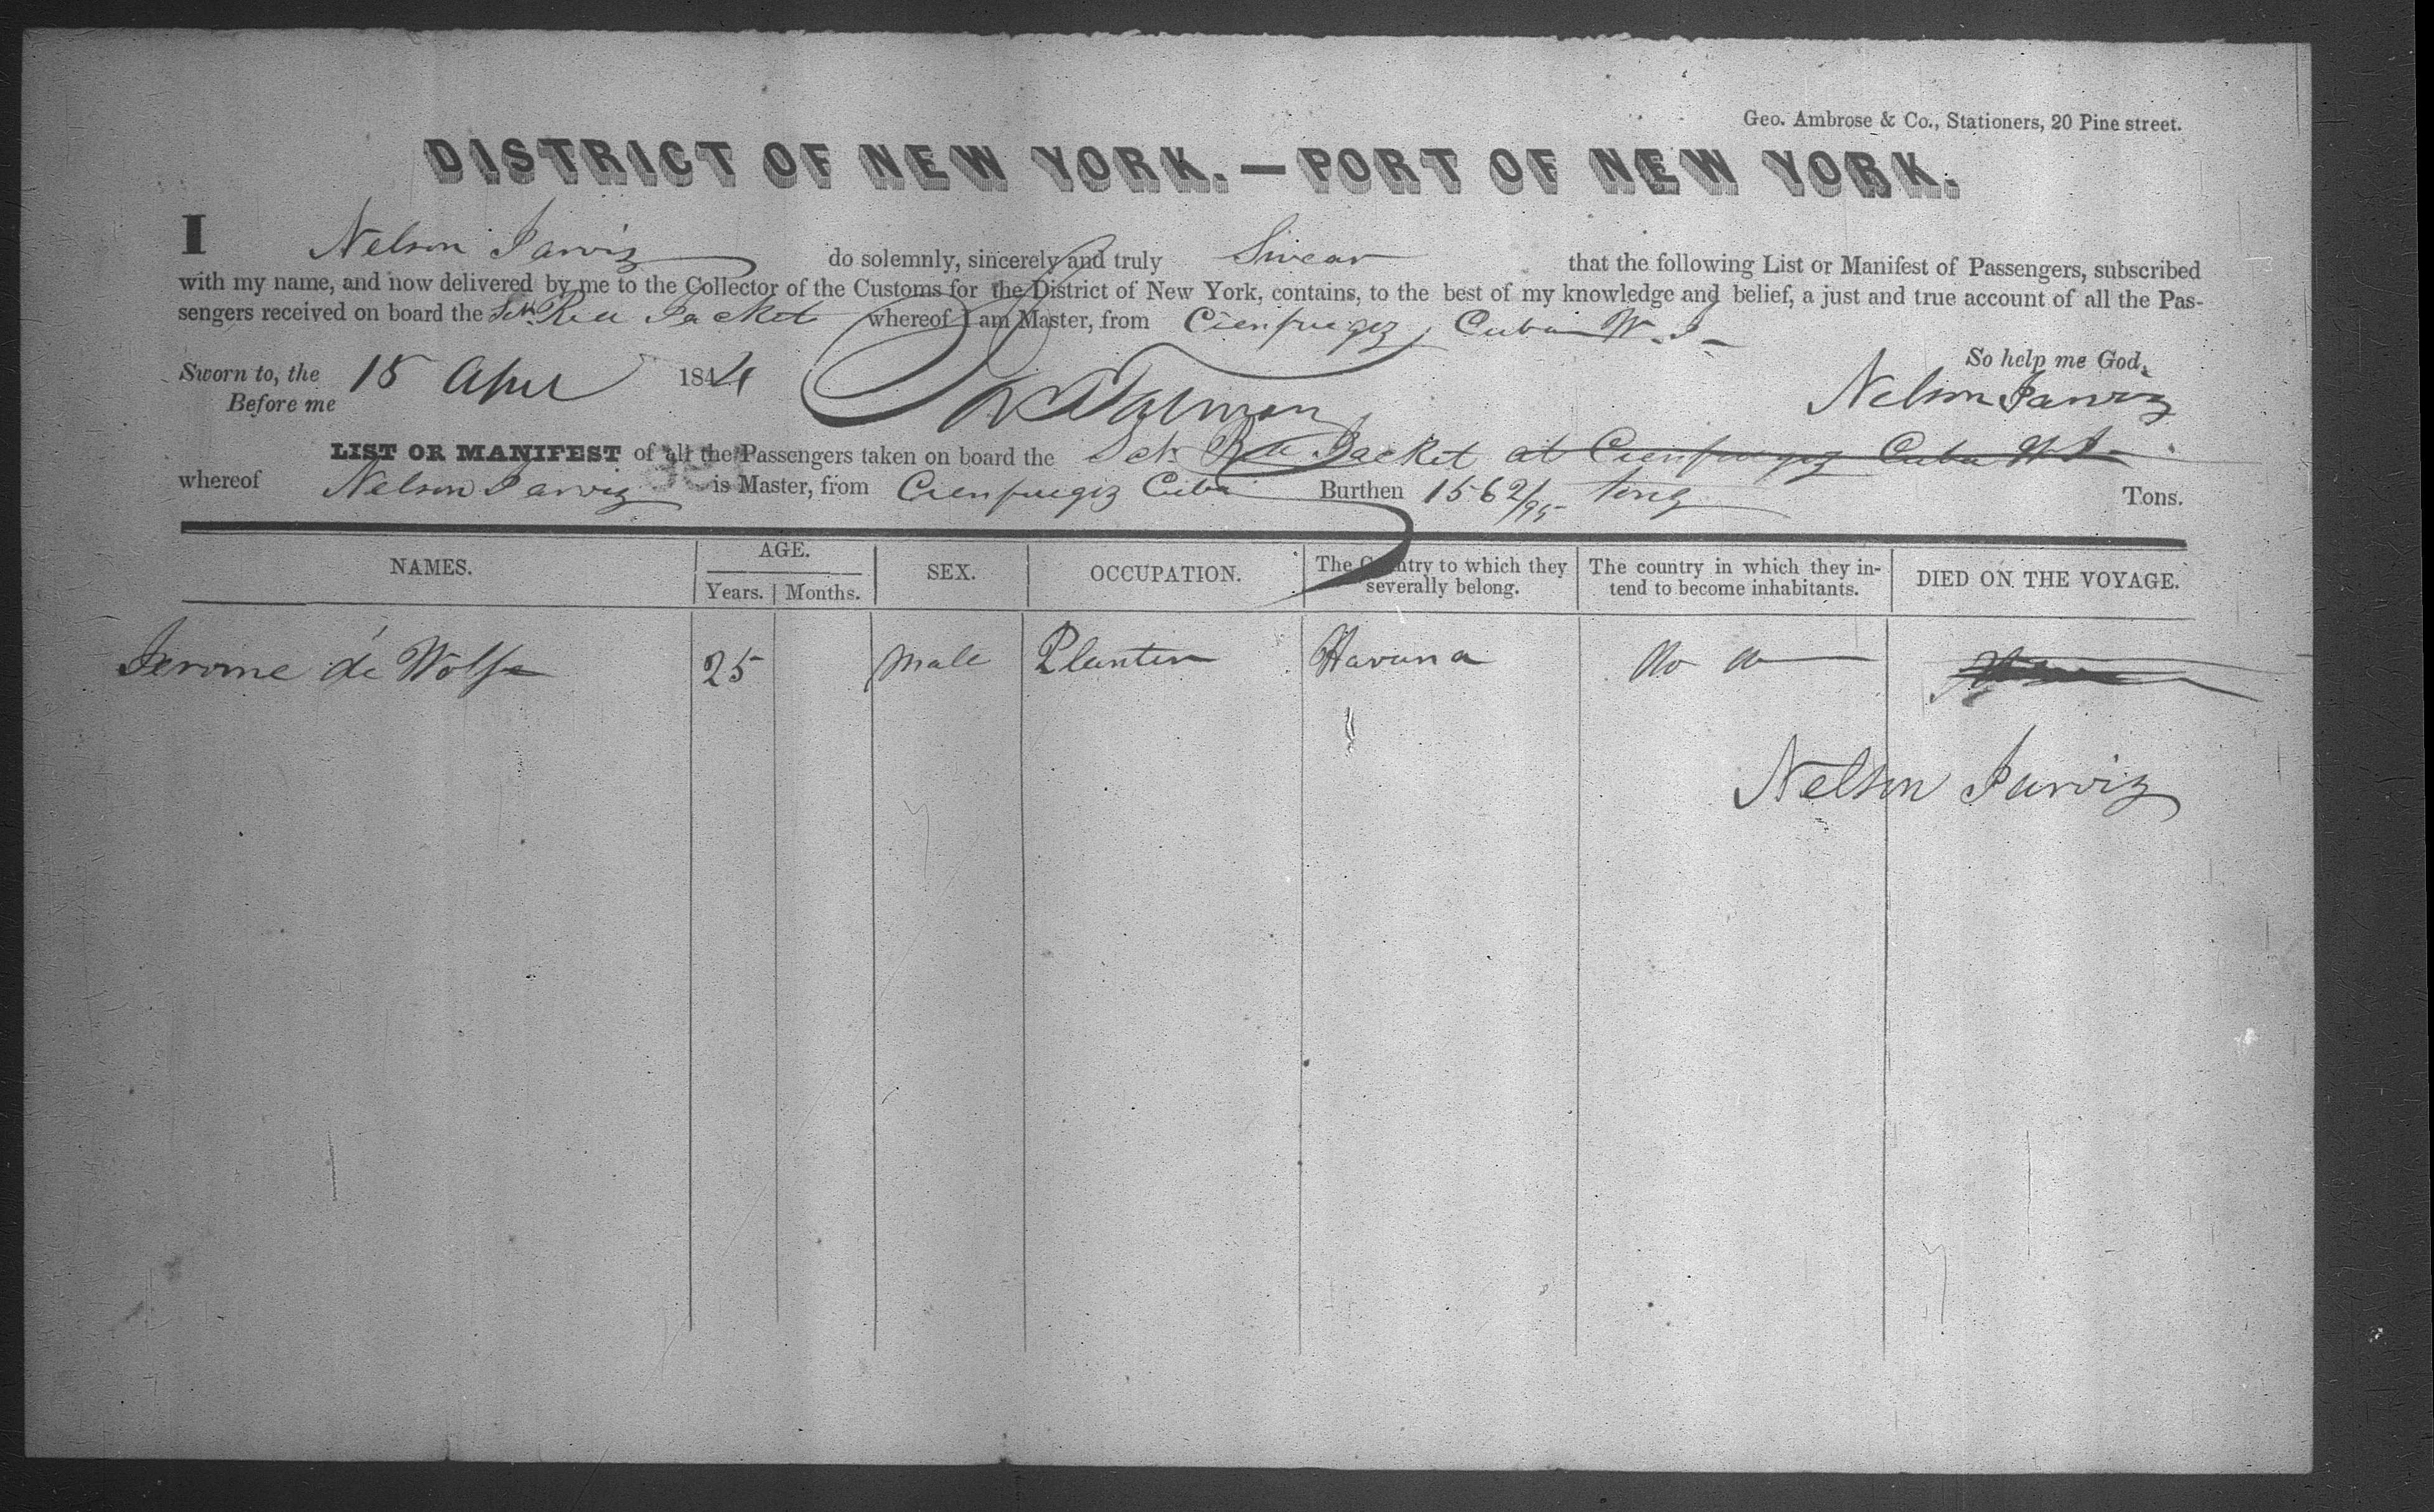 Geo. Ambrose & Co., Stationers, 20 Pine street.
DISTRICT OF NEW YORK.—PORT OF NEW YORK.
I Nelson Jarviz do solemnly, sincerely and truly Swear that the following List or Manifest of Passengers, subscribed
with my name, and now delivered by me to the Collector of the Customs for the District of New York, contains, to the best of my knowledge and belief, a just and true account of all the Pas-
sengers received on board the Sch Jacket whereof I am Master, from Cienfuegiz, Cuba W. I
So help me God,
Sworn to, the 15 April 1844
Nelson Jarviz
Before me
LIST OR MANIFEST of all the Passengers taken on board the Sch Jacket at Cienfuegiz Cuba W. I
whereof Nelson Jarviz is Master, from Cienfuegiz Cuba Burthen 156 2/95 tong Tons.
NAMES. AGE. Years. Months. SEX. OCCUPATION. The Country to which they severally belong. The country in which they in-tend to become inhabitants. DIED ON THE VOYAGE.
Jerome de Wolfe 25 Male Planter Havana
Nelson Jarviz